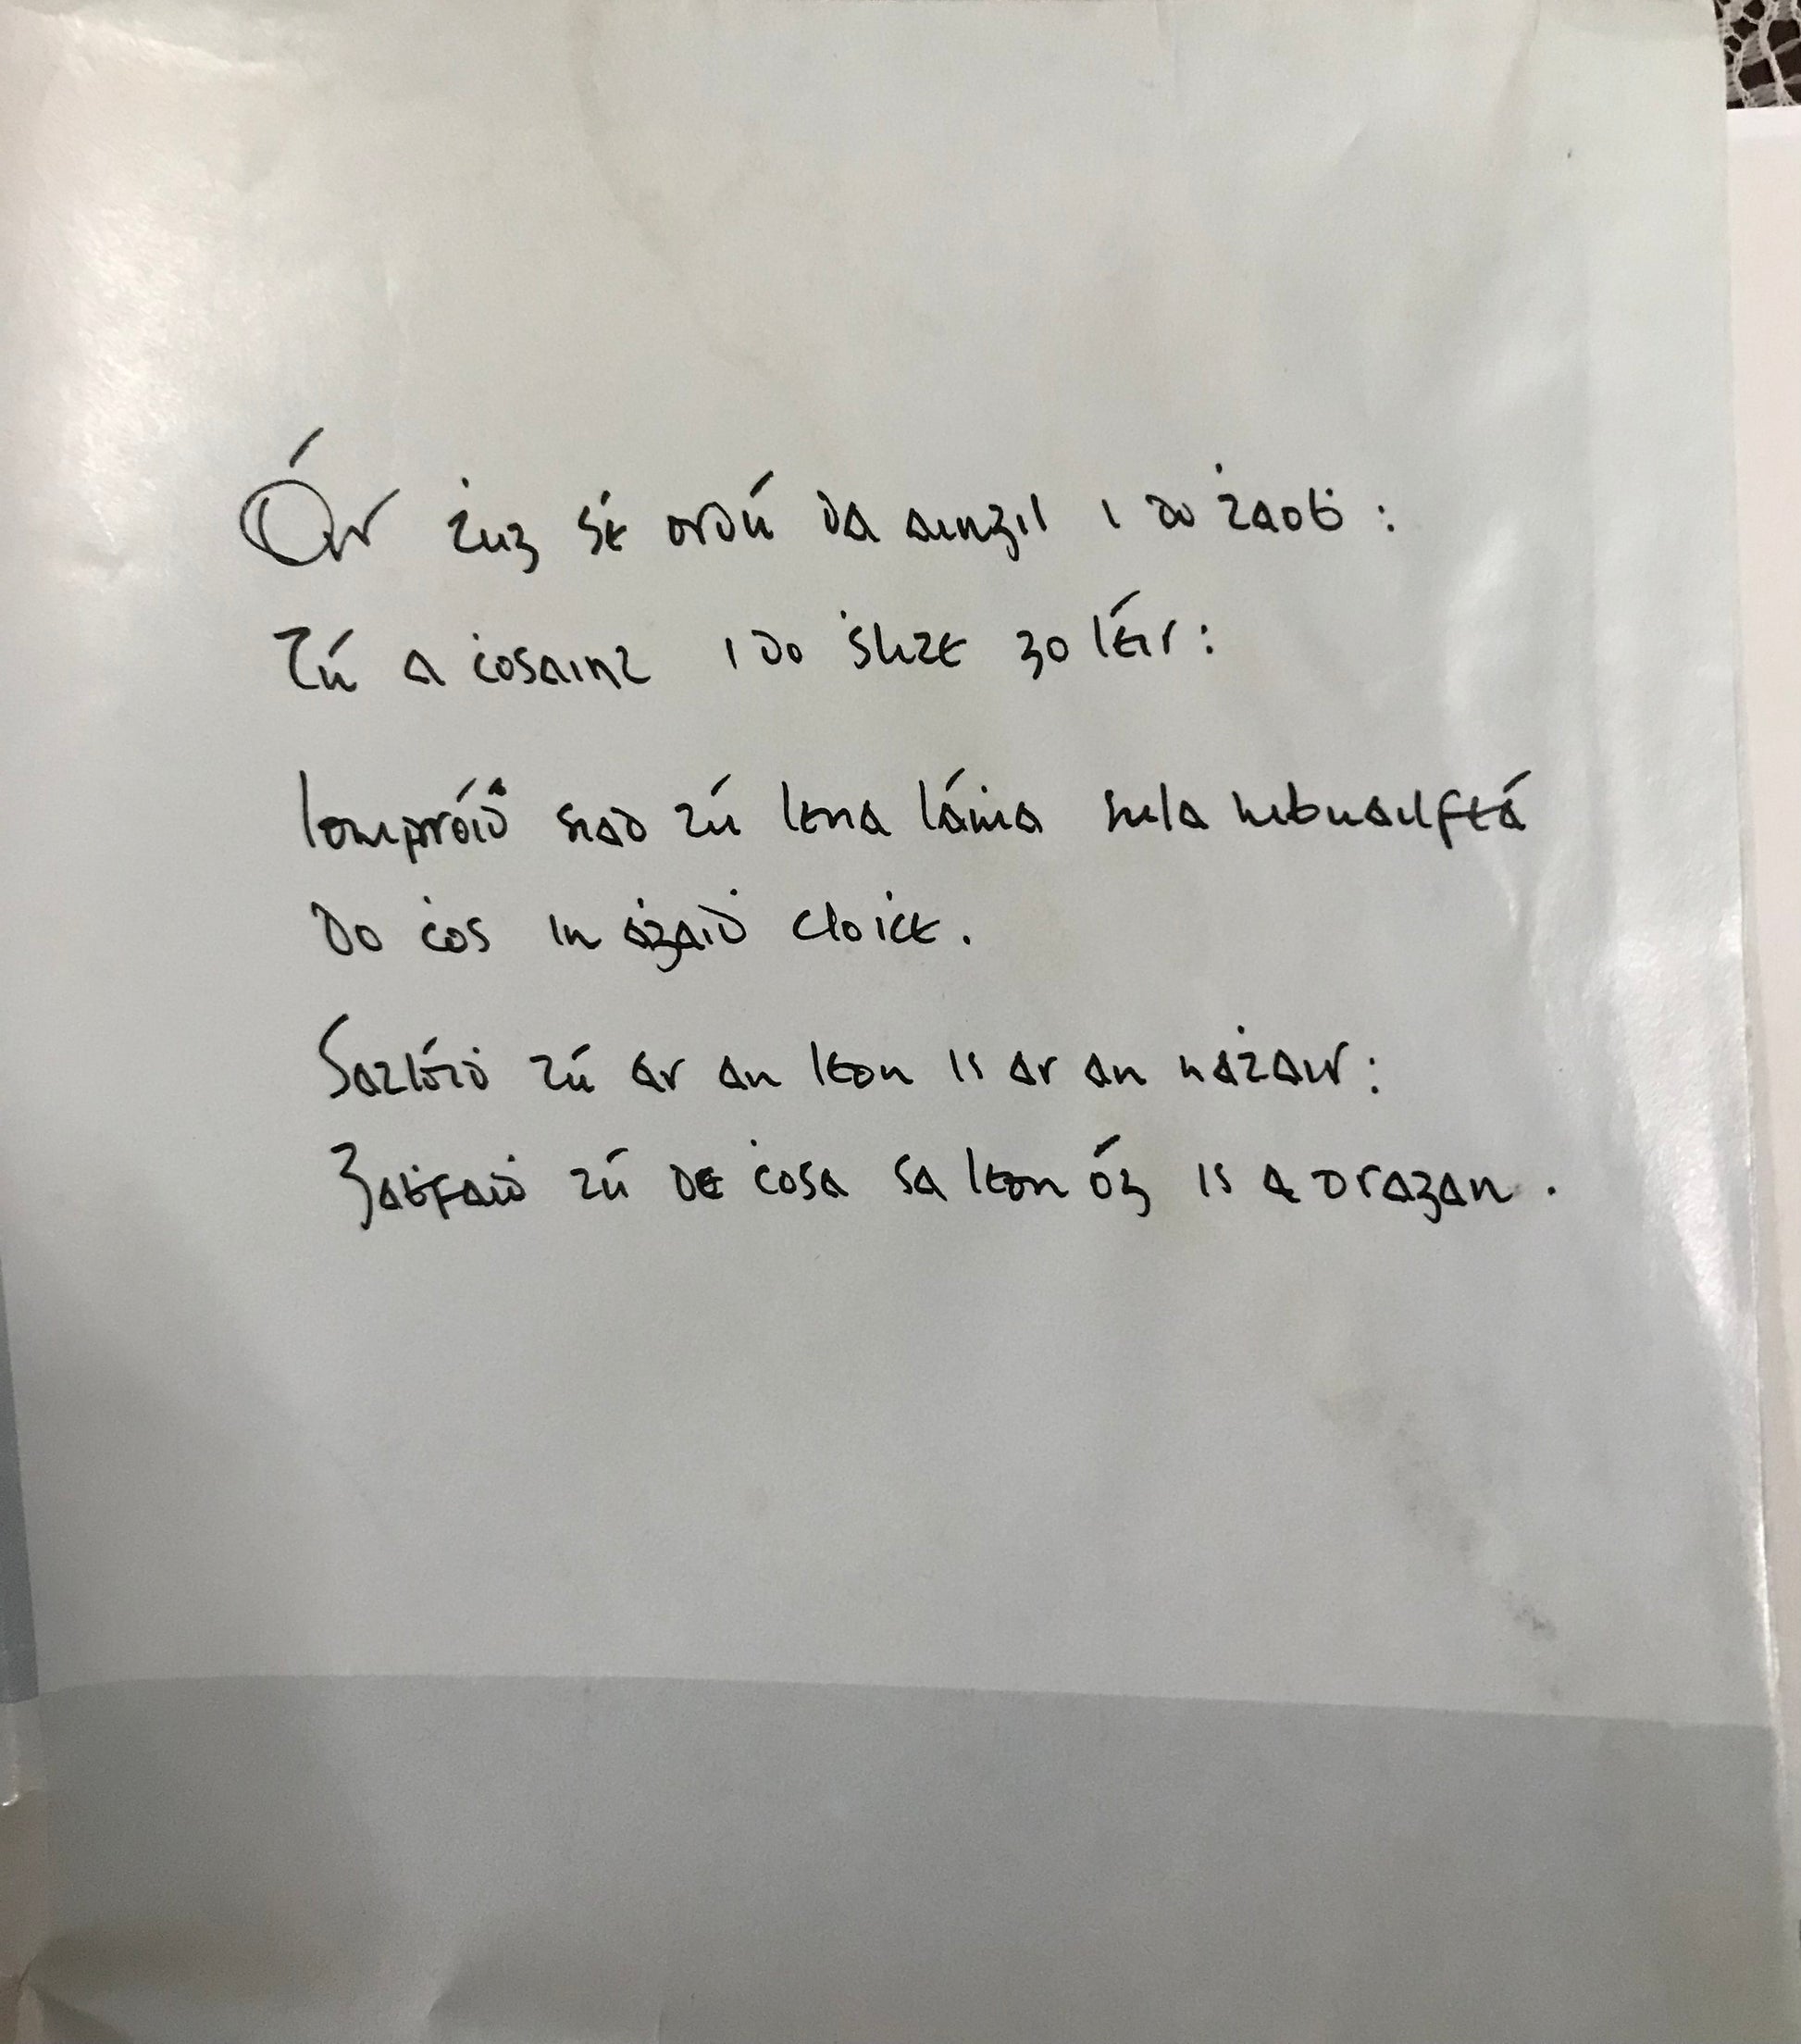 Óir ṫug sé ordú dá aingil i do ṫaoḃ :
Tú a ċosaint i do ṡlite go léir :
Iompróiḋ siad tú lena láṁa sula mbuailfeá
Do ċos in aġaiḋ cloiċe .
Satlóiḋ tú ar an leon is ar an naṫair :
Gaḃfaiḋ tú de ċosa sa leon óg is a dragan .